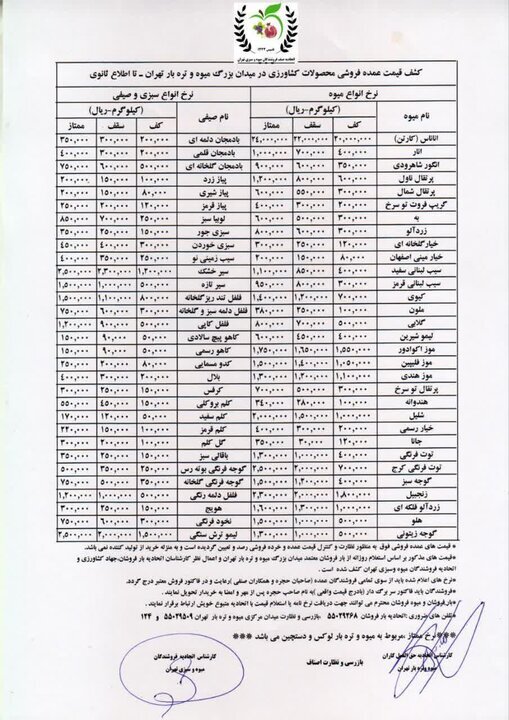 تاسیس ۱۳۲۲
اتحادیه صنف فروشندگان میوه و سبزی تهران
کشف قیمت عمده فروشی محصولات کشاورزی در میدان بزرگ میوه و تره بار تهران ـ تا اطلاع ثانوی
نرخ انواع میوه نرخ انواع سبزی و صیفی
نام میوه (کیلوگرم-ریال) نام صیفی (کیلوگرم-ریال)
کف سقف ممتاز کف سقف ممتاز
آناناس (کارتن) ۲۰,۰۰۰,۰۰۰ ۲۲,۰۰۰,۰۰۰ ۲۴,۰۰۰,۰۰۰ بادمجان دلمه ای ۲۰۰,۰۰۰ ۳۰۰,۰۰۰ ۳۵۰,۰۰۰
انار ۴۰۰,۰۰۰ ۷۰۰,۰۰۰ ۱,۰۰۰,۰۰۰ بادمجان قلمی ۲۰۰,۰۰۰ ۳۰۰,۰۰۰ ۴۰۰,۰۰۰
انگور شاهرودی ۳۵۰,۰۰۰ ۶۰۰,۰۰۰ ۹۰۰,۰۰۰ بادمجان گلخانه ای ۵۰۰,۰۰۰ ۶۰۰,۰۰۰ ۷۵۰,۰۰۰
پرتقال ناول ۶۰۰,۰۰۰ ۸۰۰,۰۰۰ ۱,۲۰۰,۰۰۰ پیاز زرد ۱۰۰,۰۰۰ ۱۵۰,۰۰۰ ۲۰۰,۰۰۰
پرتقال شمال ۳۰۰,۰۰۰ ۵۵۰,۰۰۰ ۶۰۰,۰۰۰ پیاز شیری ۸۰,۰۰۰ ۱۵۰,۰۰۰ ۲۰۰,۰۰۰
گریپ فروت تو سرخ ۲۰۰,۰۰۰ ۳۰۰,۰۰۰ ۴۰۰,۰۰۰ پیاز قرمز ۱۲۰,۰۰۰ ۲۰۰,۰۰۰ ۲۵۰,۰۰۰
به ۳۰۰,۰۰۰ ۵۰۰,۰۰۰ ۶۰۰,۰۰۰ لوبیا سبز ۲۵۰,۰۰۰ ۷۰۰,۰۰۰ ۸۵۰,۰۰۰
زردآلو ۳۰۰,۰۰۰ ۶۰۰,۰۰۰ ۸۰۰,۰۰۰ سبزی جور ۱۵۰,۰۰۰ ۲۵۰,۰۰۰ ۳۵۰,۰۰۰
خیارگلخانه ای ۱۲۰,۰۰۰ ۲۵۰,۰۰۰ ۳۰۰,۰۰۰ سبزی خوردن ۳۰۰,۰۰۰ ۴۰۰,۰۰۰ ۴۵۰,۰۰۰
خیار مینی اصفهان ۸۰,۰۰۰ ۱۵۰,۰۰۰ ۲۰۰,۰۰۰ سیب زمینی نو ۲۵۰,۰۰۰ ۳۵۰,۰۰۰ ۴۰۰,۰۰۰
سیب لبنانی سفید ۴۰۰,۰۰۰ ۸۵۰,۰۰۰ ۱,۱۰۰,۰۰۰ سیر خشک ۱,۲۰۰,۰۰۰ ۲,۳۰۰,۰۰۰ ۲,۵۰۰,۰۰۰
سیب لبنانی قرمز ۳۰۰,۰۰۰ ۸۰۰,۰۰۰ ۹۵۰,۰۰۰ سیر تازه ۵۰۰,۰۰۰ ۱,۰۰۰,۰۰۰ ۱,۵۰۰,۰۰۰
کیوی ۷۰۰,۰۰۰ ۱,۲۰۰,۰۰۰ ۱,۴۰۰,۰۰۰ فلفل تند ریزگلخانه ۸۰۰,۰۰۰ ۱,۱۰۰,۰۰۰ ۱,۵۰۰,۰۰۰
ملون ۱۰۰,۰۰۰ ۲۵۰,۰۰۰ ۳۸۰,۰۰۰ فلفل دلمه سبز و گلخانه ۳۰۰,۰۰۰ ۶۰۰,۰۰۰ ۷۵۰,۰۰۰
گلابی ۵۰۰,۰۰۰ ۷۰۰,۰۰۰ ۸۰۰,۰۰۰ فلفل کاپی ۵۰۰,۰۰۰ ۹۰۰,۰۰۰ ۱,۲۰۰,۰۰۰
لیمو شیرین ۴۰۰,۰۰۰ ۴۵۰,۰۰۰ ۶۰۰,۰۰۰ کاهو پیچ سالادی ۵۰,۰۰۰ ۹۰,۰۰۰ ۱۵۰,۰۰۰
موز اکوادور ۱,۵۵۰,۰۰۰ ۱,۶۵۰,۰۰۰ ۱,۷۵۰,۰۰۰ کاهو رسمی ۵۰,۰۰۰ ۹۰,۰۰۰ ۱۵۰,۰۰۰
موز فلیپین ۱,۳۵۰,۰۰۰ ۱,۴۰۰,۰۰۰ ۱,۵۰۰,۰۰۰ کدو مسمایی ۸۰,۰۰۰ ۲۰۰,۰۰۰ ۲۵۰,۰۰۰
موز هندی ۱,۱۰۰,۰۰۰ ۱,۲۰۰,۰۰۰ ۱,۳۰۰,۰۰۰ بلال ۲۰۰,۰۰۰ ۳۰۰,۰۰۰ ۴۰۰,۰۰۰
پرتقال تو سرخ ۳۰۰,۰۰۰ ۵۰۰,۰۰۰ ۷۰۰,۰۰۰ کرفس ۱۵۰,۰۰۰ ۲۵۰,۰۰۰ ۳۰۰,۰۰۰
هندوانه ۱۰۰,۰۰۰ ۲۸۰,۰۰۰ ۳۴۰,۰۰۰ کلم بروکلی ۱۵۰,۰۰۰ ۴۵۰,۰۰۰ ۵۵۰,۰۰۰
شلیل ۱,۰۰۰,۰۰۰ ۱,۵۰۰,۰۰۰ ۲,۰۰۰,۰۰۰ کلم سفید ۵۰,۰۰۰ ۱۲۰,۰۰۰ ۱۷۰,۰۰۰
خیار رسمی ۲۰۰,۰۰۰ ۳۰۰,۰۰۰ ۴۰۰,۰۰۰ کلم قرمز ۱۰۰,۰۰۰ ۱۵۰,۰۰۰ ۲۲۰,۰۰۰
جانا ۱۲۰,۰۰۰ ۳۰,۰۰۰ ۳۵۰,۰۰۰ گل کلم ۱۰۰,۰۰۰ ۲۰۰,۰۰۰ ۳۰۰,۰۰۰
توت فرنگی ۴۰۰,۰۰۰ ۱,۰۰۰,۰۰۰ ۱,۳۰۰,۰۰۰ باقالی سبز ۱۵۰,۰۰۰ ۲۵۰,۰۰۰ ۳۵۰,۰۰۰
توت فرنگی کرج ۷۰۰,۰۰۰ ۲,۰۰۰,۰۰۰ ۲,۵۰۰,۰۰۰ گوجه فرنگی بوته رس ۲۵۰,۰۰۰ ۳۵۰,۰۰۰ ۵۰۰,۰۰۰
گوجه سبز ۴۰۰,۰۰۰ ۱,۲۰۰,۰۰۰ ۱,۵۰۰,۰۰۰ گوجه فرنگی گلخانه ۳۵۰,۰۰۰ ۵۰۰,۰۰۰ ۷۵۰,۰۰۰
زنجبیل ۱,۸۰۰,۰۰۰ ۲,۰۰۰,۰۰۰ ۲,۳۰۰,۰۰۰ فلفل دلمه رنگی ۵۰۰,۰۰۰ ۱,۰۰۰,۰۰۰ ۱,۲۰۰,۰۰۰
زردآلو فلکه ای ۱,۰۰۰,۰۰۰ ۱,۳۰۰,۰۰۰ ۱,۶۰۰,۰۰۰ هویج ۱۵۰,۰۰۰ ۲۵۰,۰۰۰ ۳۰۰,۰۰۰
هلو ۵۰۰,۰۰۰ ۱,۰۰۰,۰۰۰ ۱,۵۰۰,۰۰۰ نخود فرنگی ۳۰۰,۰۰۰ ۶۰۰,۰۰۰ ۷۵۰,۰۰۰
گوجه زیتونی ۵۰۰,۰۰۰ ۱,۰۰۰,۰۰۰ ۱,۳۰۰,۰۰۰ لیمو ترش سنگی ۱,۵۰۰,۰۰۰ ۲,۰۰۰,۰۰۰ ۲,۵۰۰,۰۰۰
*قیمت های عمده فروشی فوق به منظور نظارت و کنترل قیمت عمده و خرده فروشی رصد و تعیین گردیده است و به منزله خرید از تولید کننده نمی باشد.
*قیمت های مذکور بر اساس استعلام روزانه از بار فروشان معتمد میدان بزرگ میوه و تره بار تهران و اعمال نظر کارشناسان اتحادیه بار فروشان،جهاد کشاورزی و
اتحادیه فروشندگان میوه وسبزی تهران کشف شده است.
*نرخ های اعلام شده باید از سوی تمامی فروشندگان عمده (صاحبان حجره و همکاران صنفی )رعایت و در فاکتور فروش معتبر درج گردد.
*فروشندگان باید فاکتور سر برگ دار (بادرج قیمت واقعی )به نام صاحب حجره پس از مهر و امضا به خریدار تحویل نمایند.
*بارفروشان و میوه فروشان محترم می توانند جهت دریافت نرخ نامه یا استعلام قیمت با اتحادیه متبوع خویش ارتباط برقرار نمایند.
*تلفن های ضروری :اتحادیه بار فروشان ۵۵۰۲۹۲۶۸ .بازرسی و نظارت میدان مرکزی میوه و تره بار تهران ۵۵۰۲۹۵۰۹ و ۱۲۴
***نرخ ممتاز ،مربوط به میوه و تره بار لوکس و دستچین می باشد ***
کارشناس حق العمل کاران بازرسی و نظارت اصناف کارشناس اتحادیه فروشندگان
میوه و تره بار تهران میوه و سبزی تهران